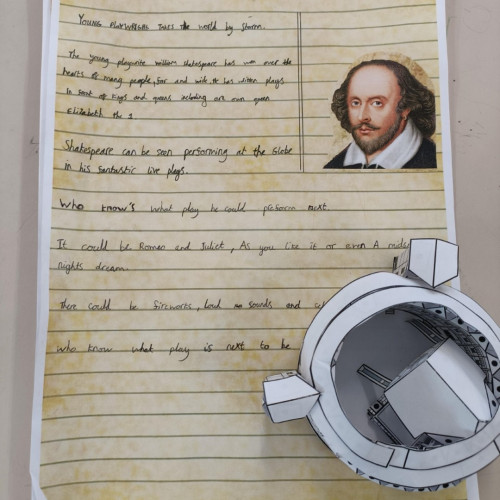 YOUNG PLAYWRIGHT TAKES the world by storm.
The young playwrite william shakespeare has won over the
hearts of many people, far and wide. He has writen plays
in front of kings and queens including are own queen
Elizabeth the 1
Shakespeare can be seen performing at the Globe
in his fantastic live plays.
Who know's what play he could preform next.
It could be Romeo and Juliet, As you like it or even A mids
nights dream.
there could be fireworks, loud sounds and
who know what play is next to be